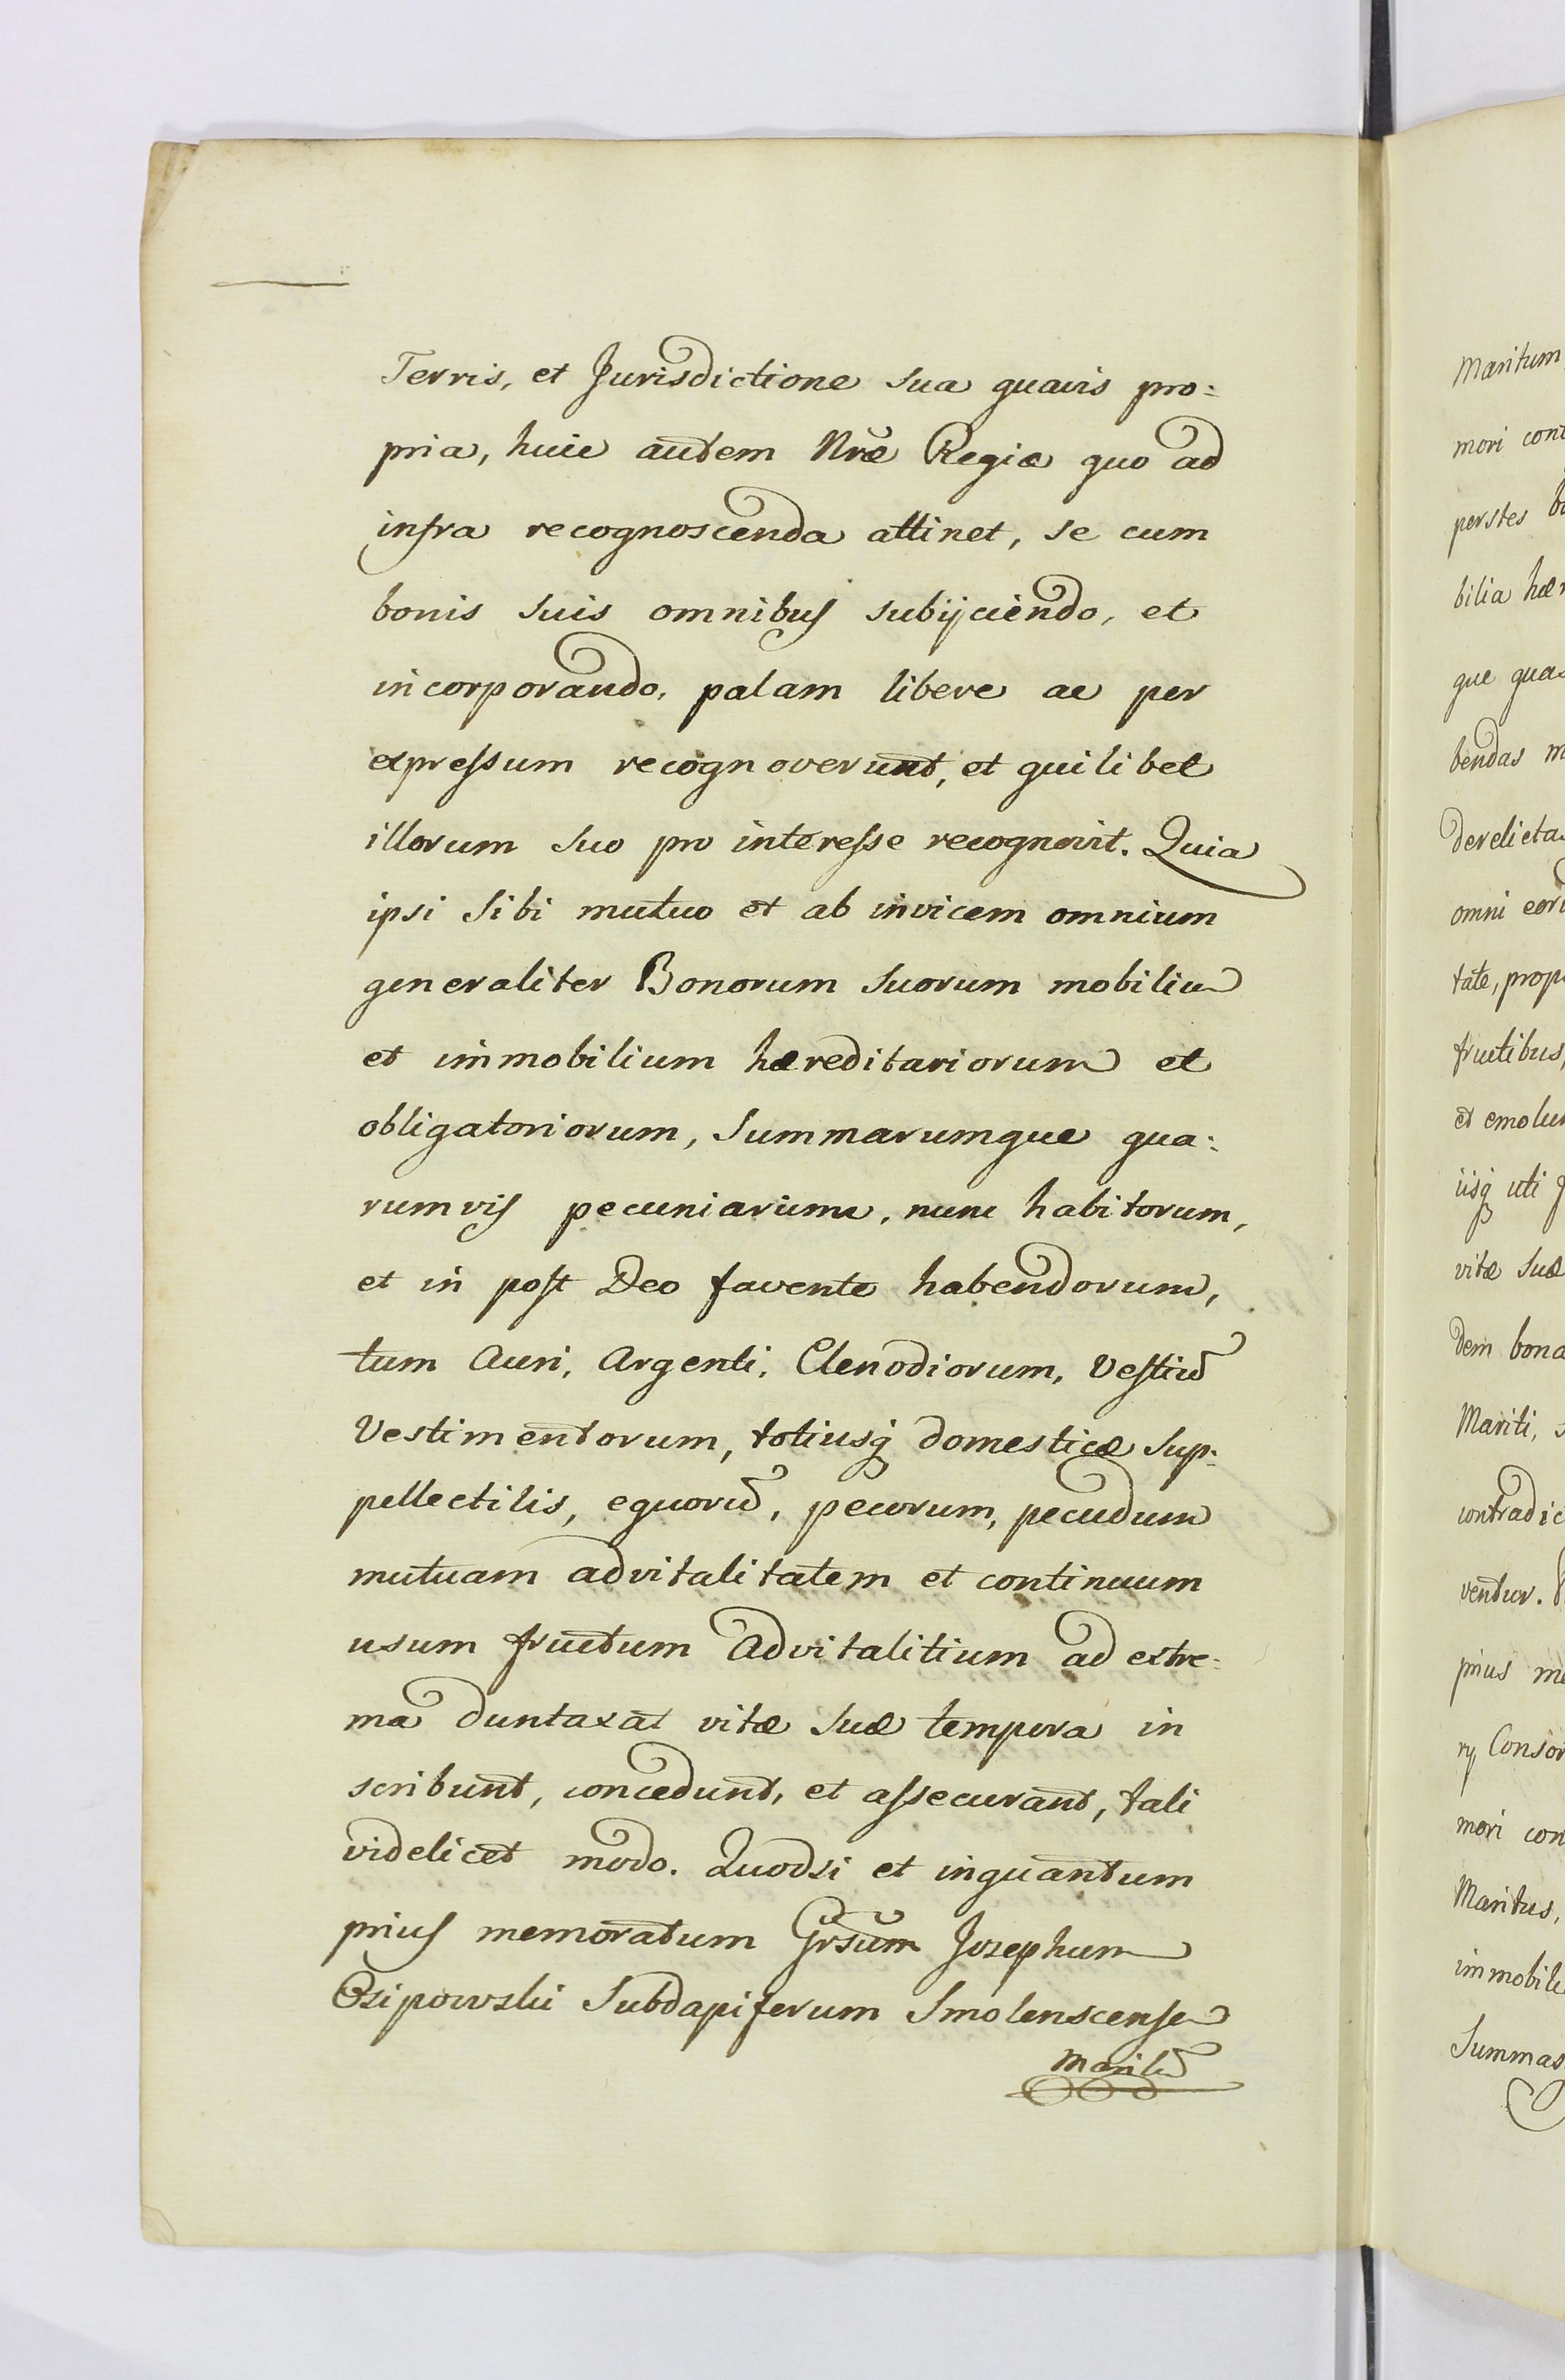 Terris, et Jurisdictione sua quavis pro:
pria, huic autem Nræ Regiæ quo ad
infra recognoscenda attinet, se cum
bonis suis omnibus subijciendo, et
incorporando, palam libere ac per
expressum recognoverunt, et quilibet
illorum suo pro interesse recognovit. Quia
ipsi sibi mutuo et ab invicem omnium
generaliter Bonorum suorum mobilium
et immobilium hæreditariorum et
obligatoriorum, Summarumque qua:
rumvis pecuniarium, nunc habitorum,
et in post Deo favente habendorum,
tum Auri, Argenti, Clenodiorum, Vestiũ
Vestimentorum, totiusq domesticæ Sup:
pellectilis, equorũ, pecorum, pecudum
mutuam advitalitatem et continuum
usum fructum Advitalitium ad extre:
ma duntaxat vitæ suæ tempora in
scribunt, concedunt, et assecurant, tali
videlicet modo. Quodsi et inquantum
prius memoratum Grsum Josephum
Osipowski Subdapiferum Smolenscense
Maritũ
Maritum
mori con
perstes
bilia hær
que quas
bendas m
derelicta
omni
tate, prop
fructibus,
et emolu
iisq uti
vitæ suæ
dem bona
Mariti,
contradic
ventur.
prius me
ry Consor
mori con
Maritus,
immobile
Summas